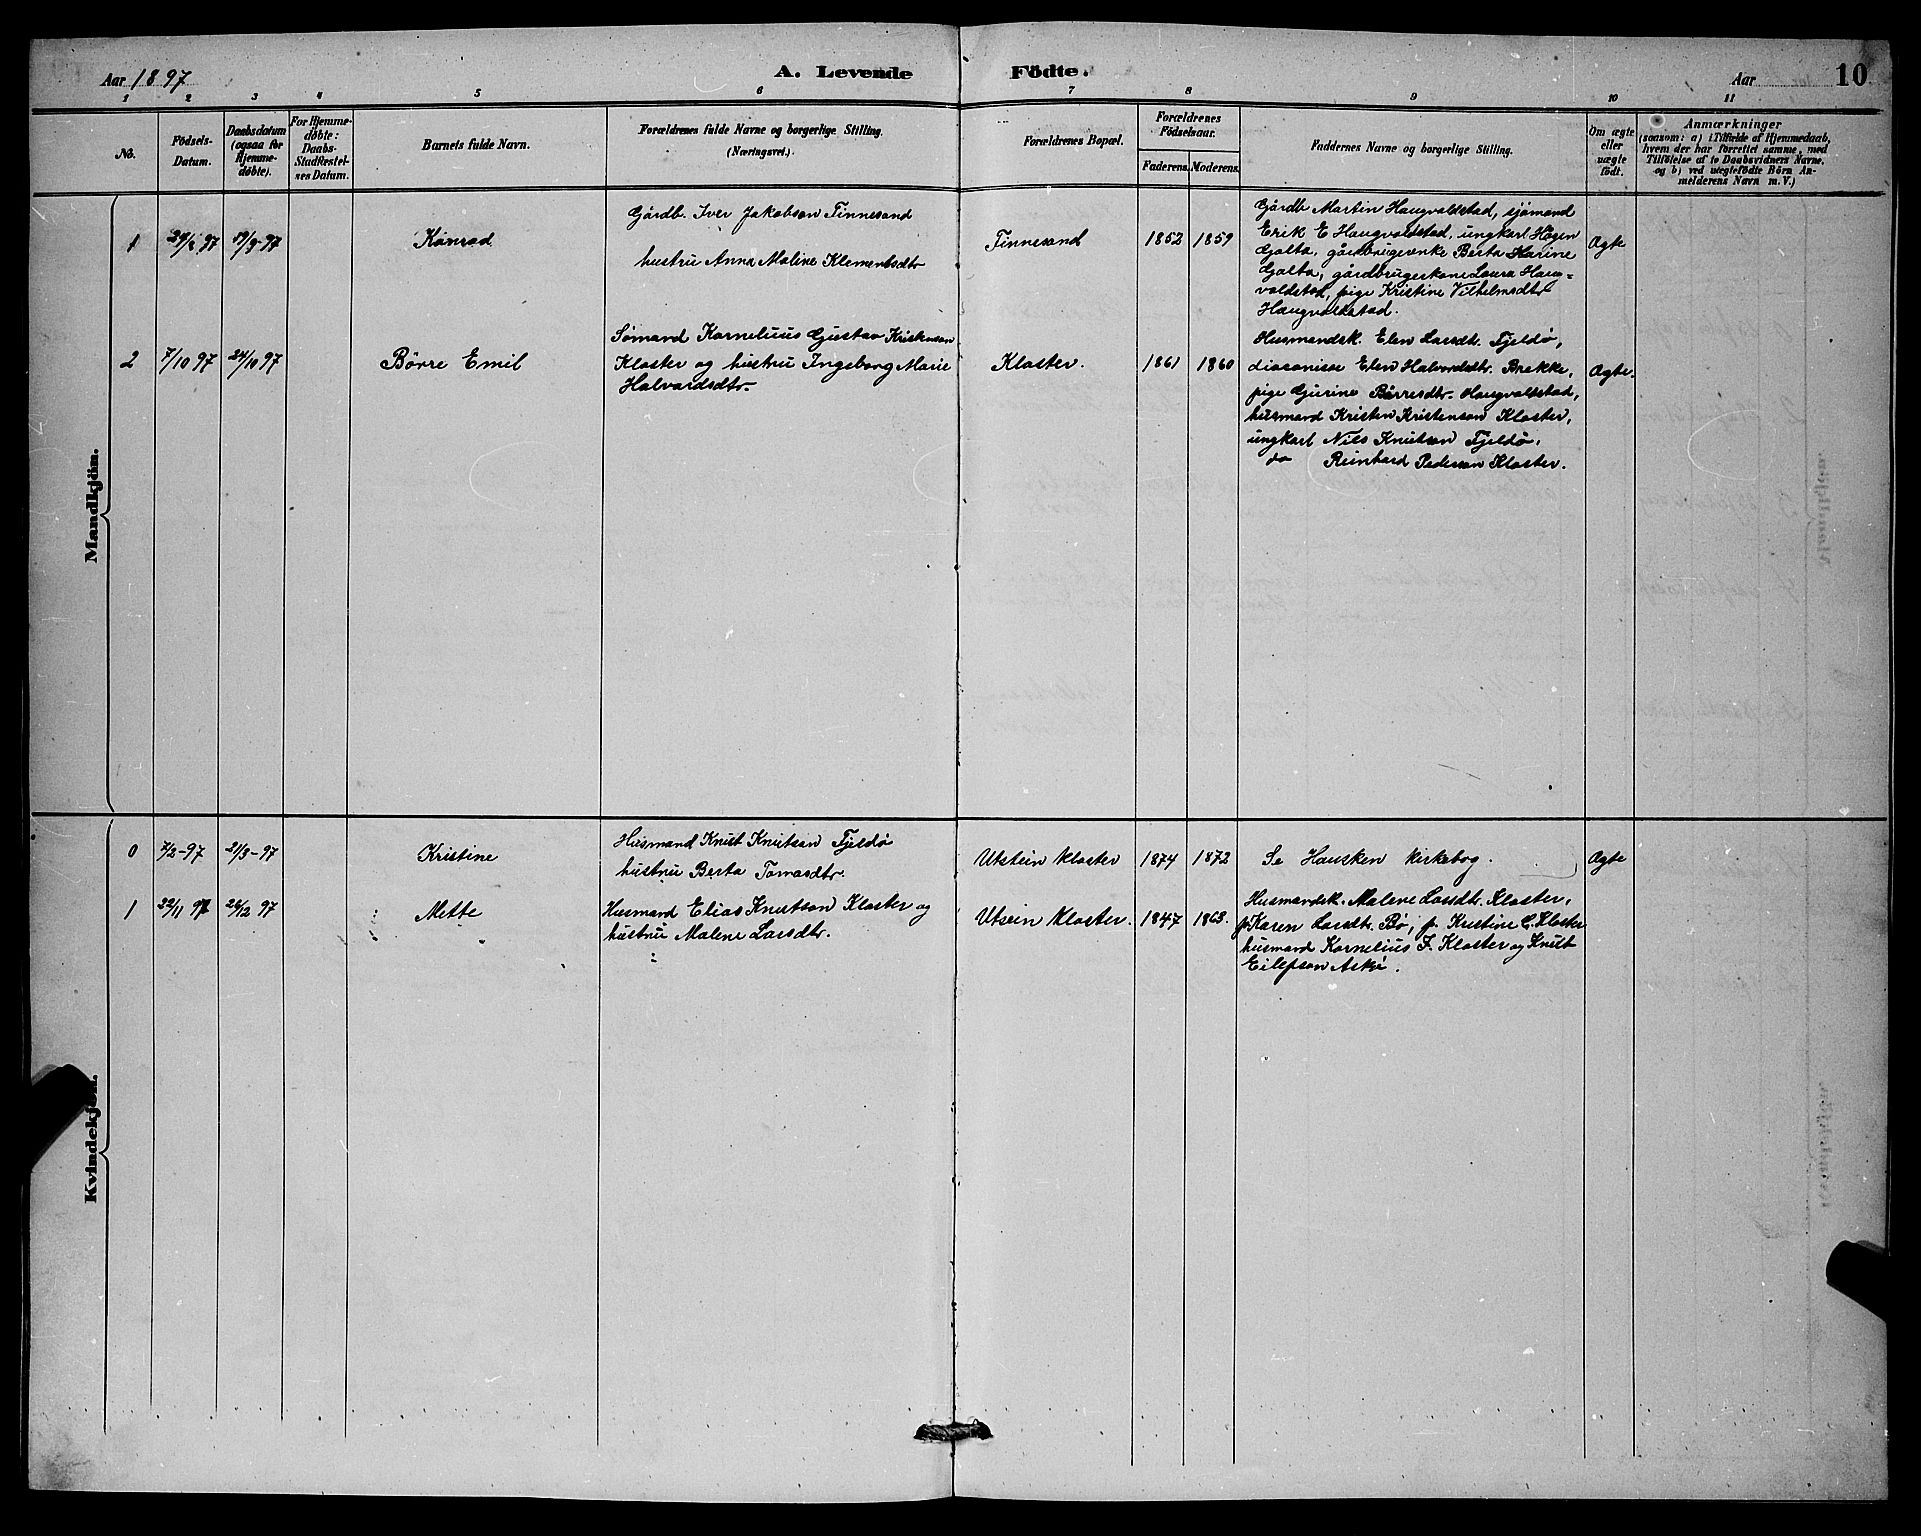 Aar 1897
A. Levende Födte.
Aar
10
1 2 3 4 5 6 7 8 9 10 11
No.
Födsels-
Datum.
Daabsdatum
(ogsaa for
Hjemme-
døbte).
For Hjemme-
døbte:
Daabs-
Stadfæstel-
ses Datum.
Barnets fulde Navn.
Forældrenes fulde Navne og borgerlige Stilling.
(Næringsvei.)
Forældrenes Bopæl.
Forældrenes
Födselsaar.
Faderens. Moderens.
Faddernes Navne og borgerlige Stilling.
Om ægte
eller
uægte
født.
Anmærkninger
(saasom: a) i Tilfælde af Hjemmedaab,
hvem der har forrettet samme, med
Tilföielse af to Daabsvidners Navne,
og b) ved uægtefødte Börn An-
melderens Navn m. V.)
Mandkjön.
1
24/2 97
19/9 97
Konrad
Gårdb. Iver Jakobson Finnesand
hustru Anna Maline Klementsdtr
Finnesand
1852
1859
Gårdb Martin Haugvaldstad, sjömand
Erik E Haugvaldstad, ungkarl Hågen
Galta, gårdbrugerenke Berta Karine
Galta, gårdbrugerkone Laura Haug-
valdstad, pige Kristine Vilhelmsdtr
Haugvaldstad.
Ægte
2
7/10 97
24/10 97
Børre Emil
Sømand Kornelius Gustav Kristenson
Kloster og hustru Ingeborg Marie
Halvardsdtr.
Kloster.
1861
1860
Husmandsk. Elen Larsdt. Fjeldø,
diaconisse Elen Halvardsdtr. Brekke,
pige Gjurine Børresdtr. Haugvaldstad,
husmand Kristen Kristenson Kloster,
ungkarl Nils Knutson Fjeldø,
do Reinhard Pederson Kloster.
Ægte.
Kvindekjön.
0
7/2-97
21/3-97
Kristine
Husmand Knut Knutson Fjeldø
hustru Berta Tomasdtr.
Utstein Kloster
1874
1872
Se Hausken kirkebog.
Ægte
1
22/11 97
26/12 97
Mette
Husmand Elias Knutson Kloster og
hustru Malene Larsdtr.
Utsein Kloster.
1847
1863.
Husmandsk. Malene Larsdtr. Kloster,
p. Karen Larsdtr. Bø, p. Kristine C. Kloster
husmand Kornelius J. Kloster og Knut
Eilefson Askø.